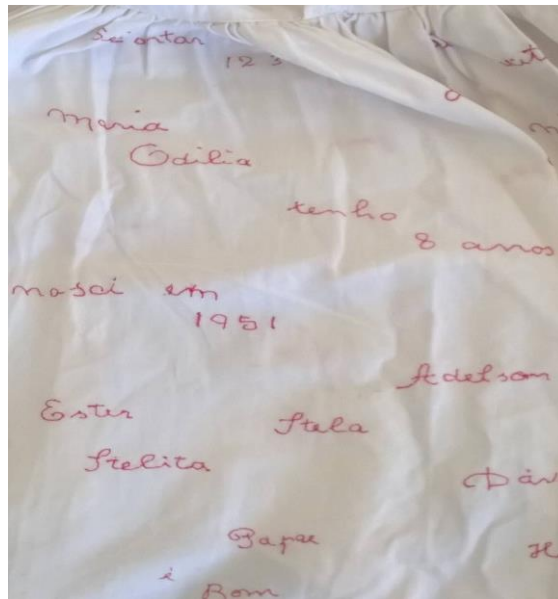 Sei ontar
123
Maria
Odilia
tenho
8 anos
nasci em
1951
Adelson
Ester
Stela
Stelita
Papae
é
Bom